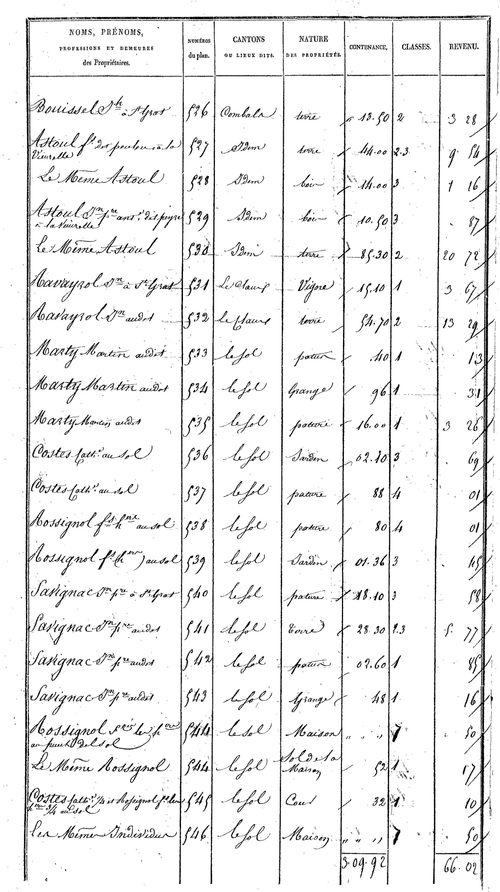 NOMS, PRÉNOMS, PROFESSIONS ET DEMEURES des Propriétaires. NUMÉROS du plan. CANTONS OU LIEUX DITS. NATURE DES PROPRIÉTÉS. CONTENANCE. CLASSES. REVENU.
Bouissel Jh à St Grat 526 Combals terre 13.50 2 3 28
Astoul fs dit poulou à la Vieurelle 527 Idem terre 44.00 2.3 9 54
Le Même Astoul 528 Idem bois 14.00 3 1 16
Astoul Jn pre ant. dit à la Vieurelle 529 Idem bois 10.50 3 87
Le Même Astoul 530 Idem terre 85.30 2 20 72
Ravayrol Jn à St Grat 531 Le Claux Vigne 15.10 1 3 67
Ravayrol Jn audit 532 le Claux terre 54.70 2 13 29
Marty Martin audit 533 le sol patus 40 1 13
Marty Martin audit 534 le sol Grange 96 1 31
Marty Martin audit 535 le sol pature 16.00 1 3 26
Costes Cathe au sol 536 le sol Jardin 02.10 3 69
Costes Cathe au sol 537 le sol pature 88 4 01
Rossignol fs au sol 538 le sol pature 80 4 01
Rossignol fs au sol 539 le sol Jardin 01.36 3 45
Savignac Jn pre à St Grat 540 le sol pature 18.10 3 58
Savignac Jn pre audit 541 le sol terre 28.30 2.3 5 77
Savignac Jn pre audit 542 le sol patus 02.60 1 85
Savignac Jn pre audit 543 le sol Grange 48 1 16
Rossignol au del sol 544 le sol Maison „ „ „ 7 50
Le Même Rossignol 544 le sol Sol de la Maison 52 1 17
Costes Cathe ¼ et Rossignol ¾ au sol 545 le sol Cour 32 1 10
Les Même Individus 546 le sol Maison „ „ „ 7 50
3.09.92 66.02